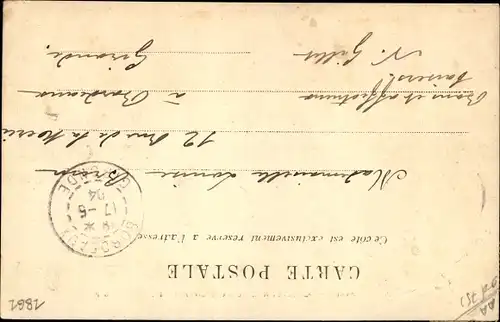 CARTE POSTALE
Ce côté est exclusivement réservé à l'adresse
Mademoiselle Louise
12 Rue de la
à Bordeaux
Gironde.
Bons et affectueux
baisers
BORDEAUX
17 - 5
04
GIRONDE
1861